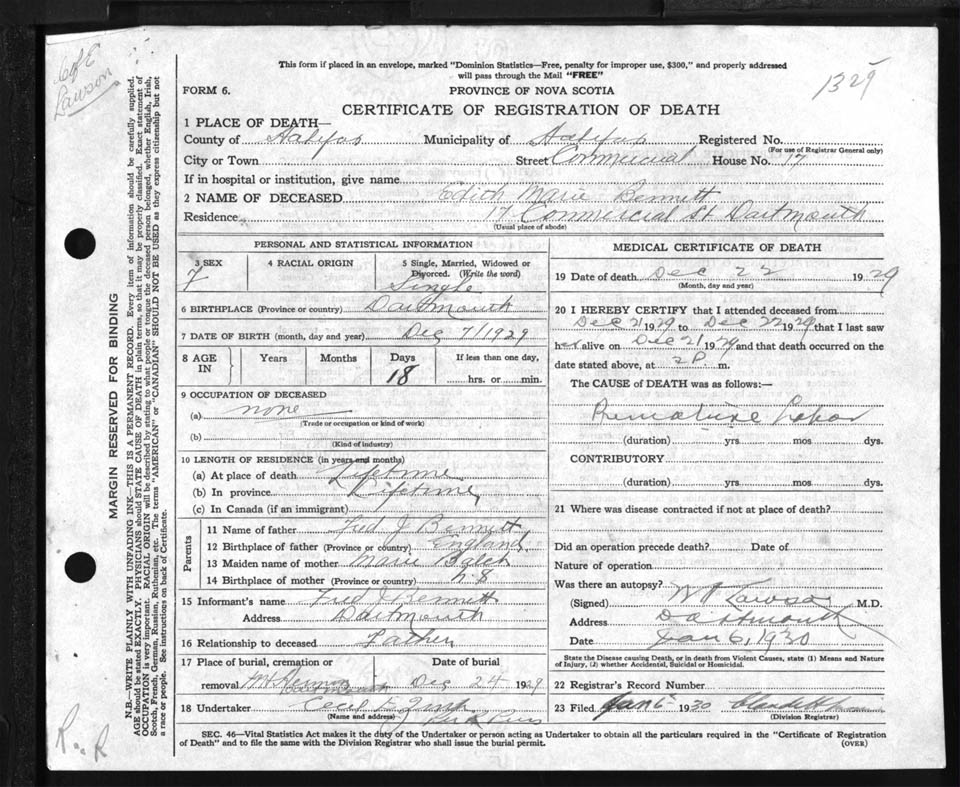 C of E
Lawson
1329
This form if placed in an envelope, marked "Dominion Statistics—Free, penalty for improper use, $300," and properly addressed
will pass through the Mail "FREE"
FORM 6. PROVINCE OF NOVA SCOTIA
CERTIFICATE OF REGISTRATION OF DEATH
1 PLACE OF DEATH—
County of Halifax Municipality of Halifax Registered No.
(For use of Registrar General only)
City or Town Street Commercial House No. 17
If in hospital or institution, give name
2 NAME OF DECEASED Edith Marie Bennett
Residence 17 Commercial St. Dartmouth
(Usual place of abode)
PERSONAL AND STATISTICAL INFORMATION
3 SEX 4 RACIAL ORIGIN 5 Single, Married, Widowed or
Divorced. (Write the word)
F Single
6 BIRTHPLACE (Province or country) Dartmouth
7 DATE OF BIRTH (month, day and year) Dec 7/1929
8 AGE IN Years Months Days If less than one day,
18 hrs. or min.
9 OCCUPATION OF DECEASED
(a) none
(Trade or occupation or kind of work)
(b)
(Kind of industry)
10 LENGTH OF RESIDENCE (in years and months)
(a) At place of death Lifetime
(b) In province Lifetime
(c) In Canada (if an immigrant)
Parents
11 Name of father Fred J Bennett
12 Birthplace of father (Province or country) England
13 Maiden name of mother Marie
14 Birthplace of mother (Province or country) N.S
15 Informant's name Fred J Bennett
Address Dartmouth
16 Relationship to deceased Father
17 Place of burial, cremation or Date of burial
removal Dec 24 1929
18 Undertaker Cecil E. Zink
(Name and address)
MEDICAL CERTIFICATE OF DEATH
19 Date of death Dec 22 1929
(Month, day and year)
20 I HEREBY CERTIFY that I attended deceased from
Dec 21 1929 to Dec 22 1929, that I last saw
her alive on Dec 21 1929 and that death occurred on the
date stated above, at 2 P m.
The CAUSE of DEATH was as follows:—
Premature Labor
(duration) yrs. mos dys.
CONTRIBUTORY
(duration) yrs. mos dys.
21 Where was disease contracted if not at place of death?
Did an operation precede death? Date of
Nature of operation
Was there an autopsy?
(Signed) Lawson M.D.
Address Dartmouth
Date Jan 6, 1930
State the Disease causing Death, or in death from Violent Causes, state (1) Means and Nature
of Injury, (2) whether Accidental, Suicidal or Homicidal.
22 Registrar's Record Number
23 Filed Jan 6 1930
(Division Registrar)
SEC. 46—Vital Statistics Act makes it the duty of the Undertaker or person acting as Undertaker to obtain all the particulars required in the "Certificate of Registration
of Death" and to file the same with the Division Registrar who shall issue the burial permit. (OVER)
MARGIN RESERVED FOR BINDING
N.B.—WRITE PLAINLY WITH UNFADING INK—THIS IS A PERMANENT RECORD. Every item of information should be carefully supplied.
AGE should be stated EXACTLY. PHYSICIANS should STATE CAUSE OF DEATH in plain terms, so that it may be properly classified. Exact statement of
OCCUPATION is very important. RACIAL ORIGIN will be described by stating to what people or tongue the deceased person belonged, whether English, Irish,
Scotch, French, German, Russian, Ruthenian, etc. The terms "AMERICAN" or "CANADIAN" SHOULD NOT BE USED as they express citizenship but not
a race or people. See instructions on back of Certificate.